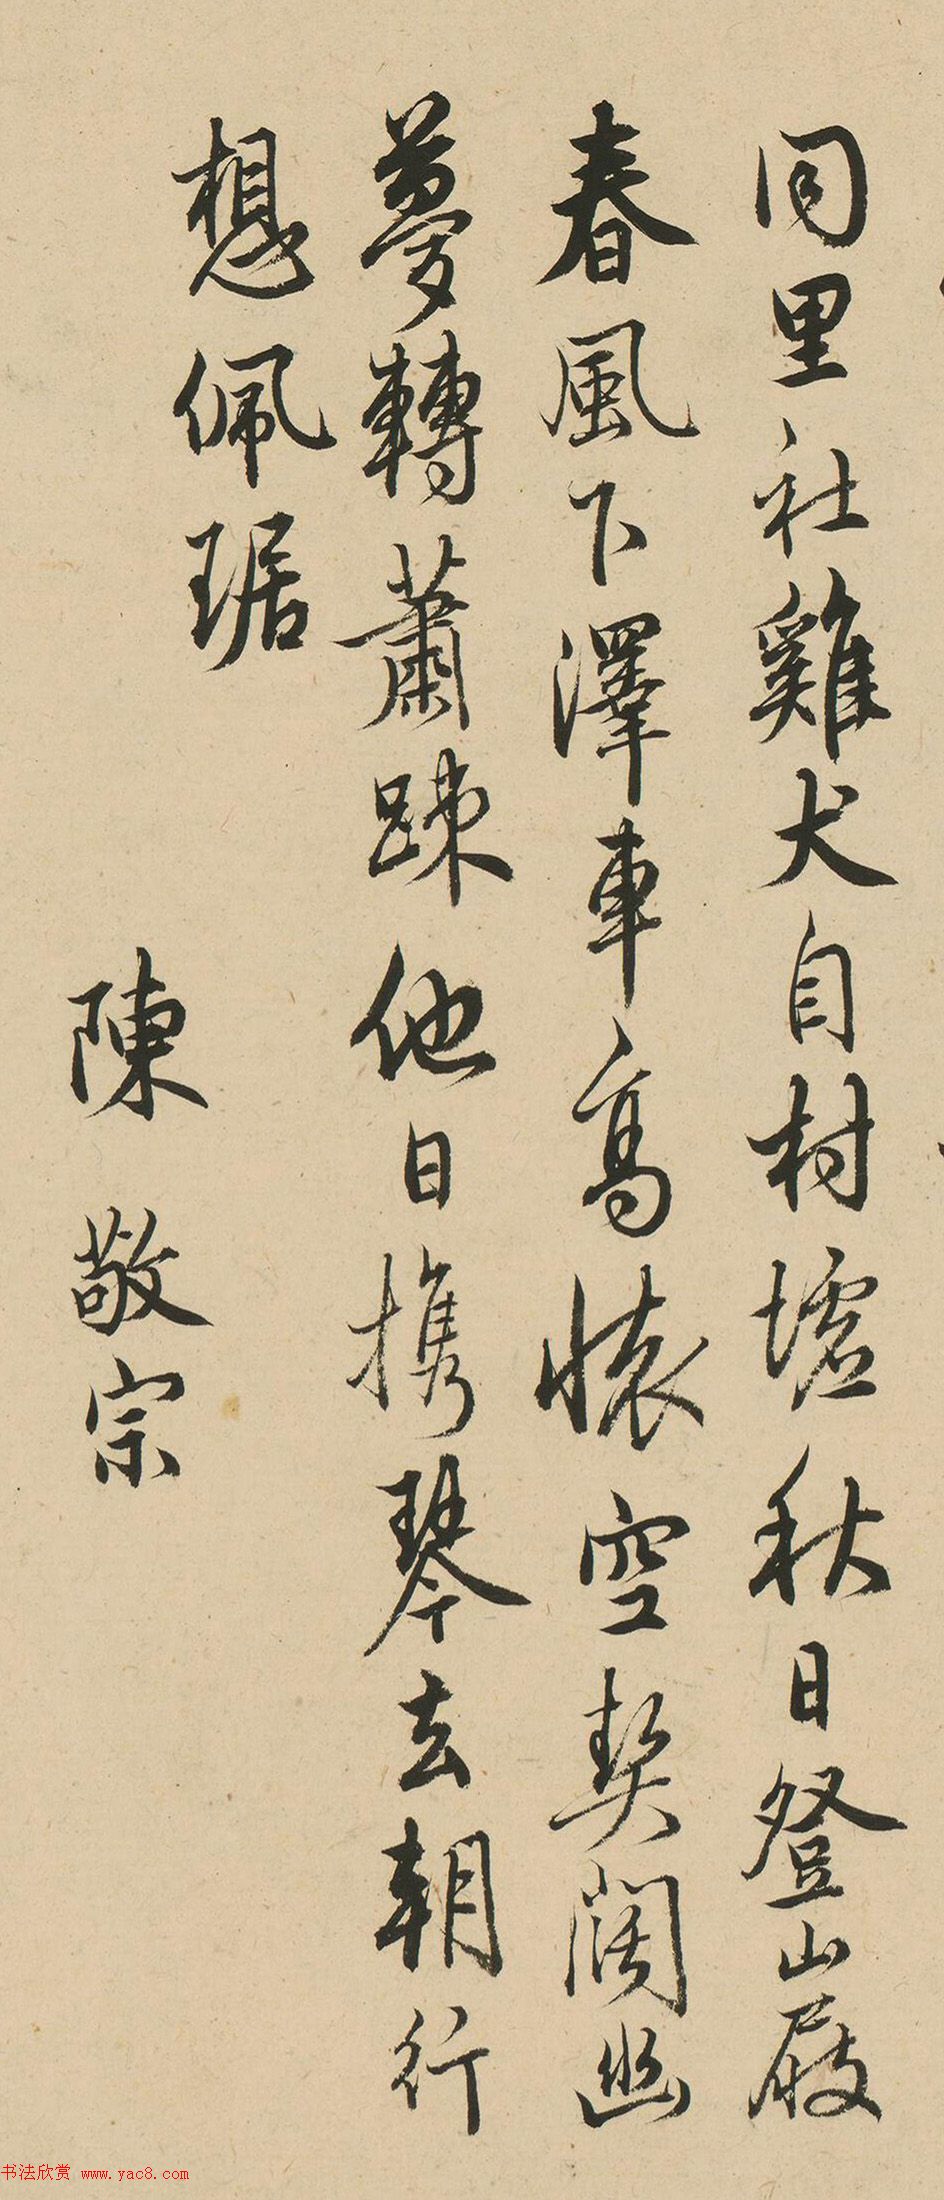 同里社雞犬自村墟秋日登山屐
春風下澤車高懷空契闊幽
夢轉蕭踈他日携琴去朝行
想佩琚
陳敬宗
书法欣赏 www.yac8.com